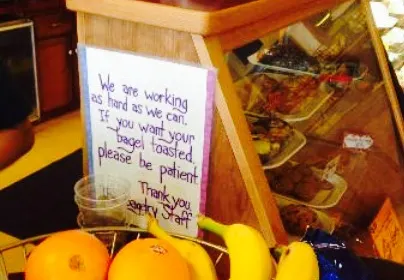 We are working
as hard as we can.
If you want your
bagel toasted
please be patient.
Thank you,
Staff